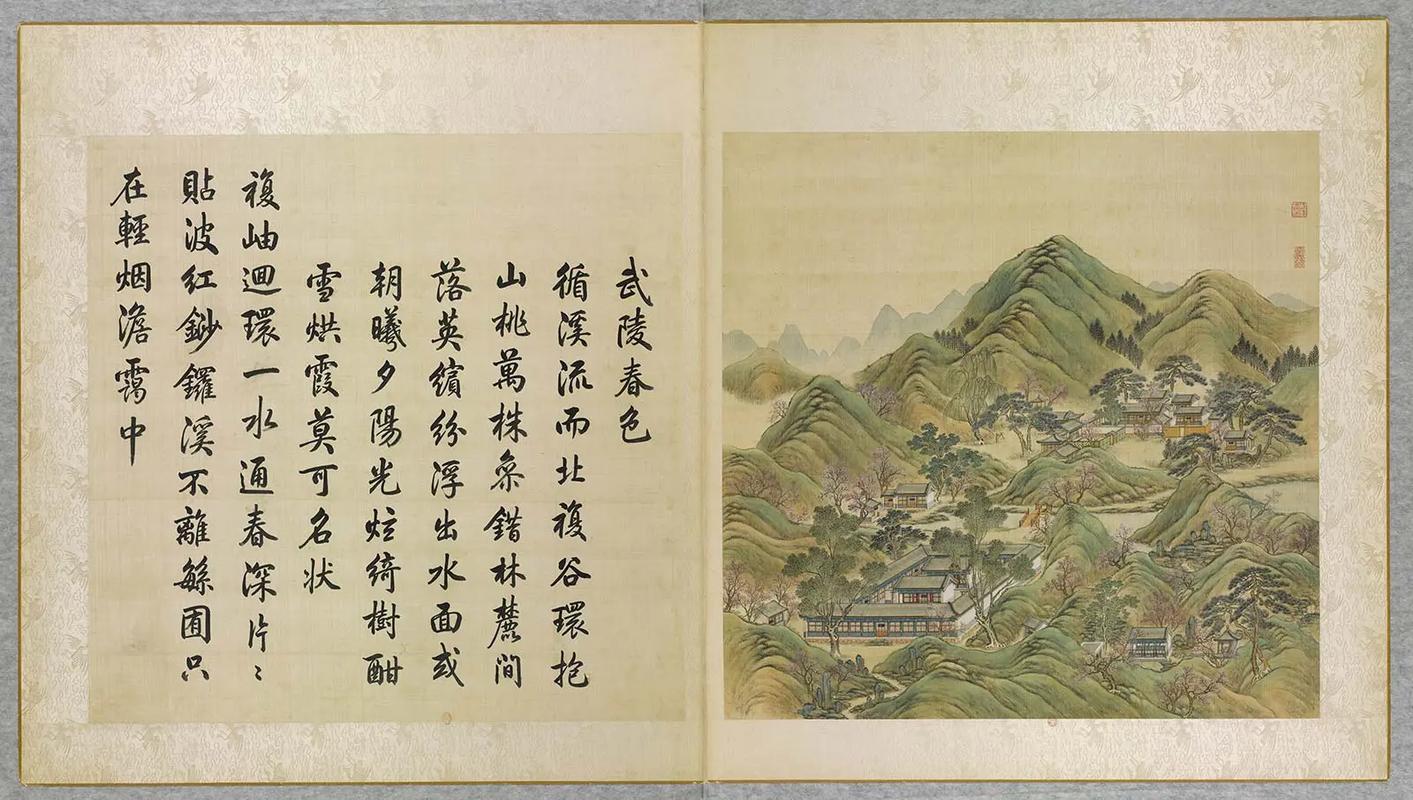 武陵春色
循溪流而北複谷環抱
山桃萬株叅錯林麓間
落英繽紛浮出水面或
朝曦夕陽光炫綺樹酣
雪烘霞莫可名状
複岫迴環一水通春深片〻
貼波紅鈔鑼溪不離緐囿只
在輕烟澹靄中